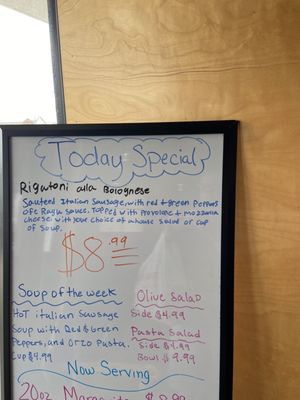 Today Special
Rigatoni alla Bolognese
Sauteed Italian Sausage, with red & green Peppers
Ragu Sauce. Topped with Provolone & mozzarella
cheese. with your choice of a house salad or cup
of Soup.
$8.99
Soup of the week
HOT italian Sausage
Soup with Red & Green
Peppers, and Orzo Pasta.
Cup $4.99
Olive Salad
Side $4.99
Pasta Salad
Side $4.99
Bowl $9.99
Now Serving
20oz